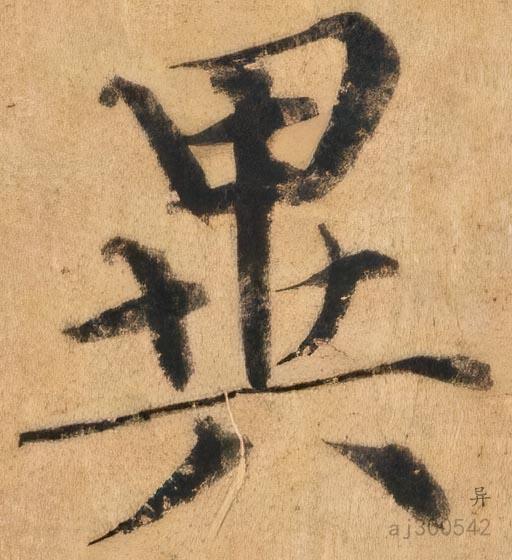 異
异
aj360542